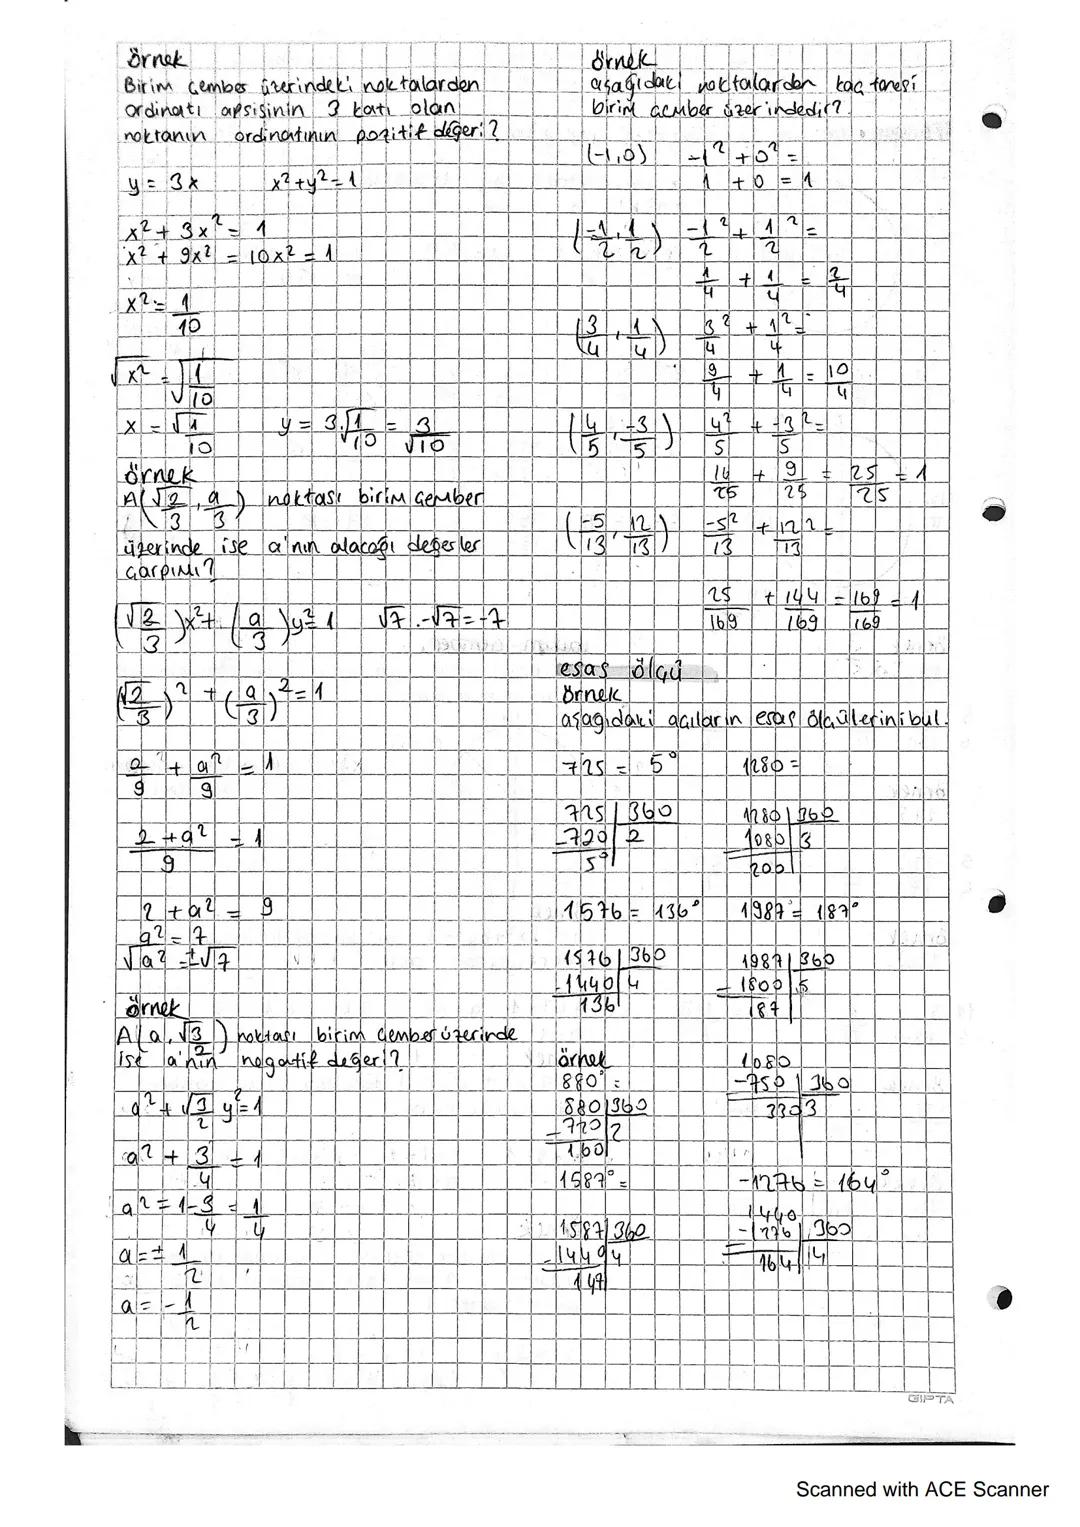 örnek
Birim çember üzerindeki noktalardan
ordinatı apsisinin 3 katı olan
noktanın ordinatının pozitif değeri?
y = 3x x²+y²=1
x² + 3x² = 1
x² + 9x² = 10x² = 1
x² = 1/10
√x² = √1/10
x = √1/10 y = 3.√1/10 = 3/√10
örnek
A(√2/3, a/3) noktası birim çember
üzerinde ise a'nın alacağı değerler
çarpımı?
(√2/3)x² + (a/3)y² = 1 √7 . -√7 = -7
(√2/3)² + (a/3)² = 1
2/9 + a²/9 = 1
2 + a²/9 = 1
2 + a² = 9
a² = 7
√a² = ±√7
örnek
A(a, √3/2) noktası birim çember üzerinde
ise a'nın negatif değeri?
a² + √3/2 y² = 1
a² + 3/4 = 1
a² = 1-3/4 = 1/4
a = ± 1/2
a = - 1/2
örnek
aşağıdaki noktalardan kaç tanesi
birim çember üzerindedir?
(-1,0) -1² + 0² =
1 + 0 = 1
(-1/2, 1/2) -1²/2 + 1²/2 =
1/4 + 1/4 = 2/4
(3/4, 1/4) 3²/4 + 1²/4 =
9/4 + 1/4 = 10/4
(4/5, -3/5) 4²/5 + -3²/5 =
16/25 + 9/25 = 25/25 = 1
(-5/13, 12/13) -5²/13 + 12²/13 =
25/169 + 144/169 = 169/169 = 1
esas ölçü
örnek
aşağıdaki açıların esas ölçülerini bul.
725 = 5° 1280 =
725 | 360 1280 | 360
-720 | 2 1080 | 3
5° 200
1576 = 136° 1987° = 187°
1576 | 360 1987 | 360
-1440 | 4 - 1800 | 5
136 187
örnek 1080
880° = -750 | 360
880 | 360 330 3
-720 | 2
160
1587° = -1276 = 164°
1440
1587 | 360 -1276 | 360
-1440 4 164 | 4
147
GIPTA
Scanned with ACE Scanner